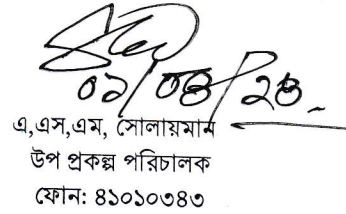 ০১/০৪/২৪
এ,এস,এম, সোলায়মান
উপ প্রকল্প পরিচালক
ফোন: ৪১০১০৩৪৩